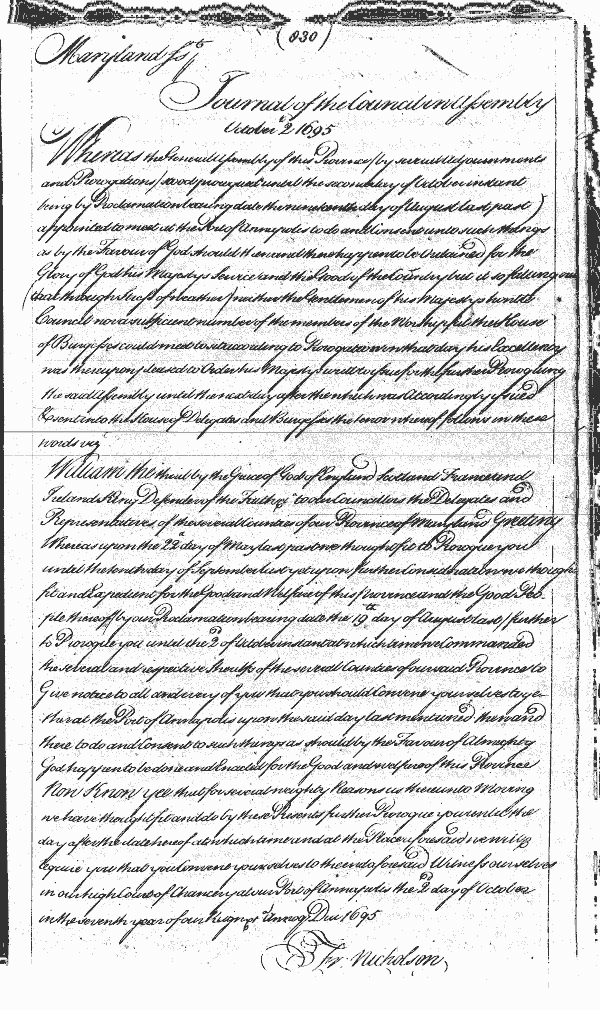 (830)
Maryland ss
Journal of the Council in Assembly
October 2d 1695
Whereas the General Assembly of this Province (by several Adjournments
and Prorogations) stood prorogued until the second day of October instant
being by Proclamation bearing date the nineteenth day of August last past)
appointed to meet at the Port of Annapolis to do and Consent unto such things
as by the Favour of God should then and there happen to be Ordained for the
Glory of God his Majestys Service and the Good of the Country but it so falling out
(that through Stress of weather) neither the Gentlemen of his Majestys hon:ble
Council nor a sufficient number of the members of the Worshipful the House
of Burgesses could meet to sit according to Prorogation on that day his Excellency
was thereupon pleased to Order his Majestys writt to issue for the further Proroguing
the said Assembly until the next day after the which was Accordingly issued
& sent into the House of Delegates and Burgesses the tenor whereof follows in these
words viz
William the third by the Grace of God of England Scotland France and
Ireland King Defender of the Faith &c to our Councillors the Delegates and
Representatives of the several Counties of our Province of Maryland Greeting
Whereas upon the 22d day of May last past we thought fit to Prorogue you
until the tenth day of September last yet upon further Consideration we thought
fit and Expedient for the Good and Welfare of this Province and the Good Peo-
ple thereof by our Proclamation bearing date the 19th day of August last) further
to Prorogue you until the 2d of October instant at which time we Commanded
the several and respective Sheriffs of the several Counties of our said Province to
Give notice to all and every of you that you should Convene yourselves toge-
ther at the Port of Annapolis upon the said day last mentioned then and
there to do and Consent to such things as should by the Favour of Almighty
God happen to be done and Enacted for the Good and welfare of this Province
Now Know yee that for several weighty Reasons us thereunto Moving
we have thought fit and do by these Presents further Prorogue you until the
day after the date hereof at which time and at the Place aforesaid we will &
require you that you Convene yourselves to the end aforesaid Witness ourselves
in our high Court of Chancery at our Port of Annapolis the 2d day of October
in the seventh year of our Reign &c Annoq Dni 1695
Fr. Nicholson